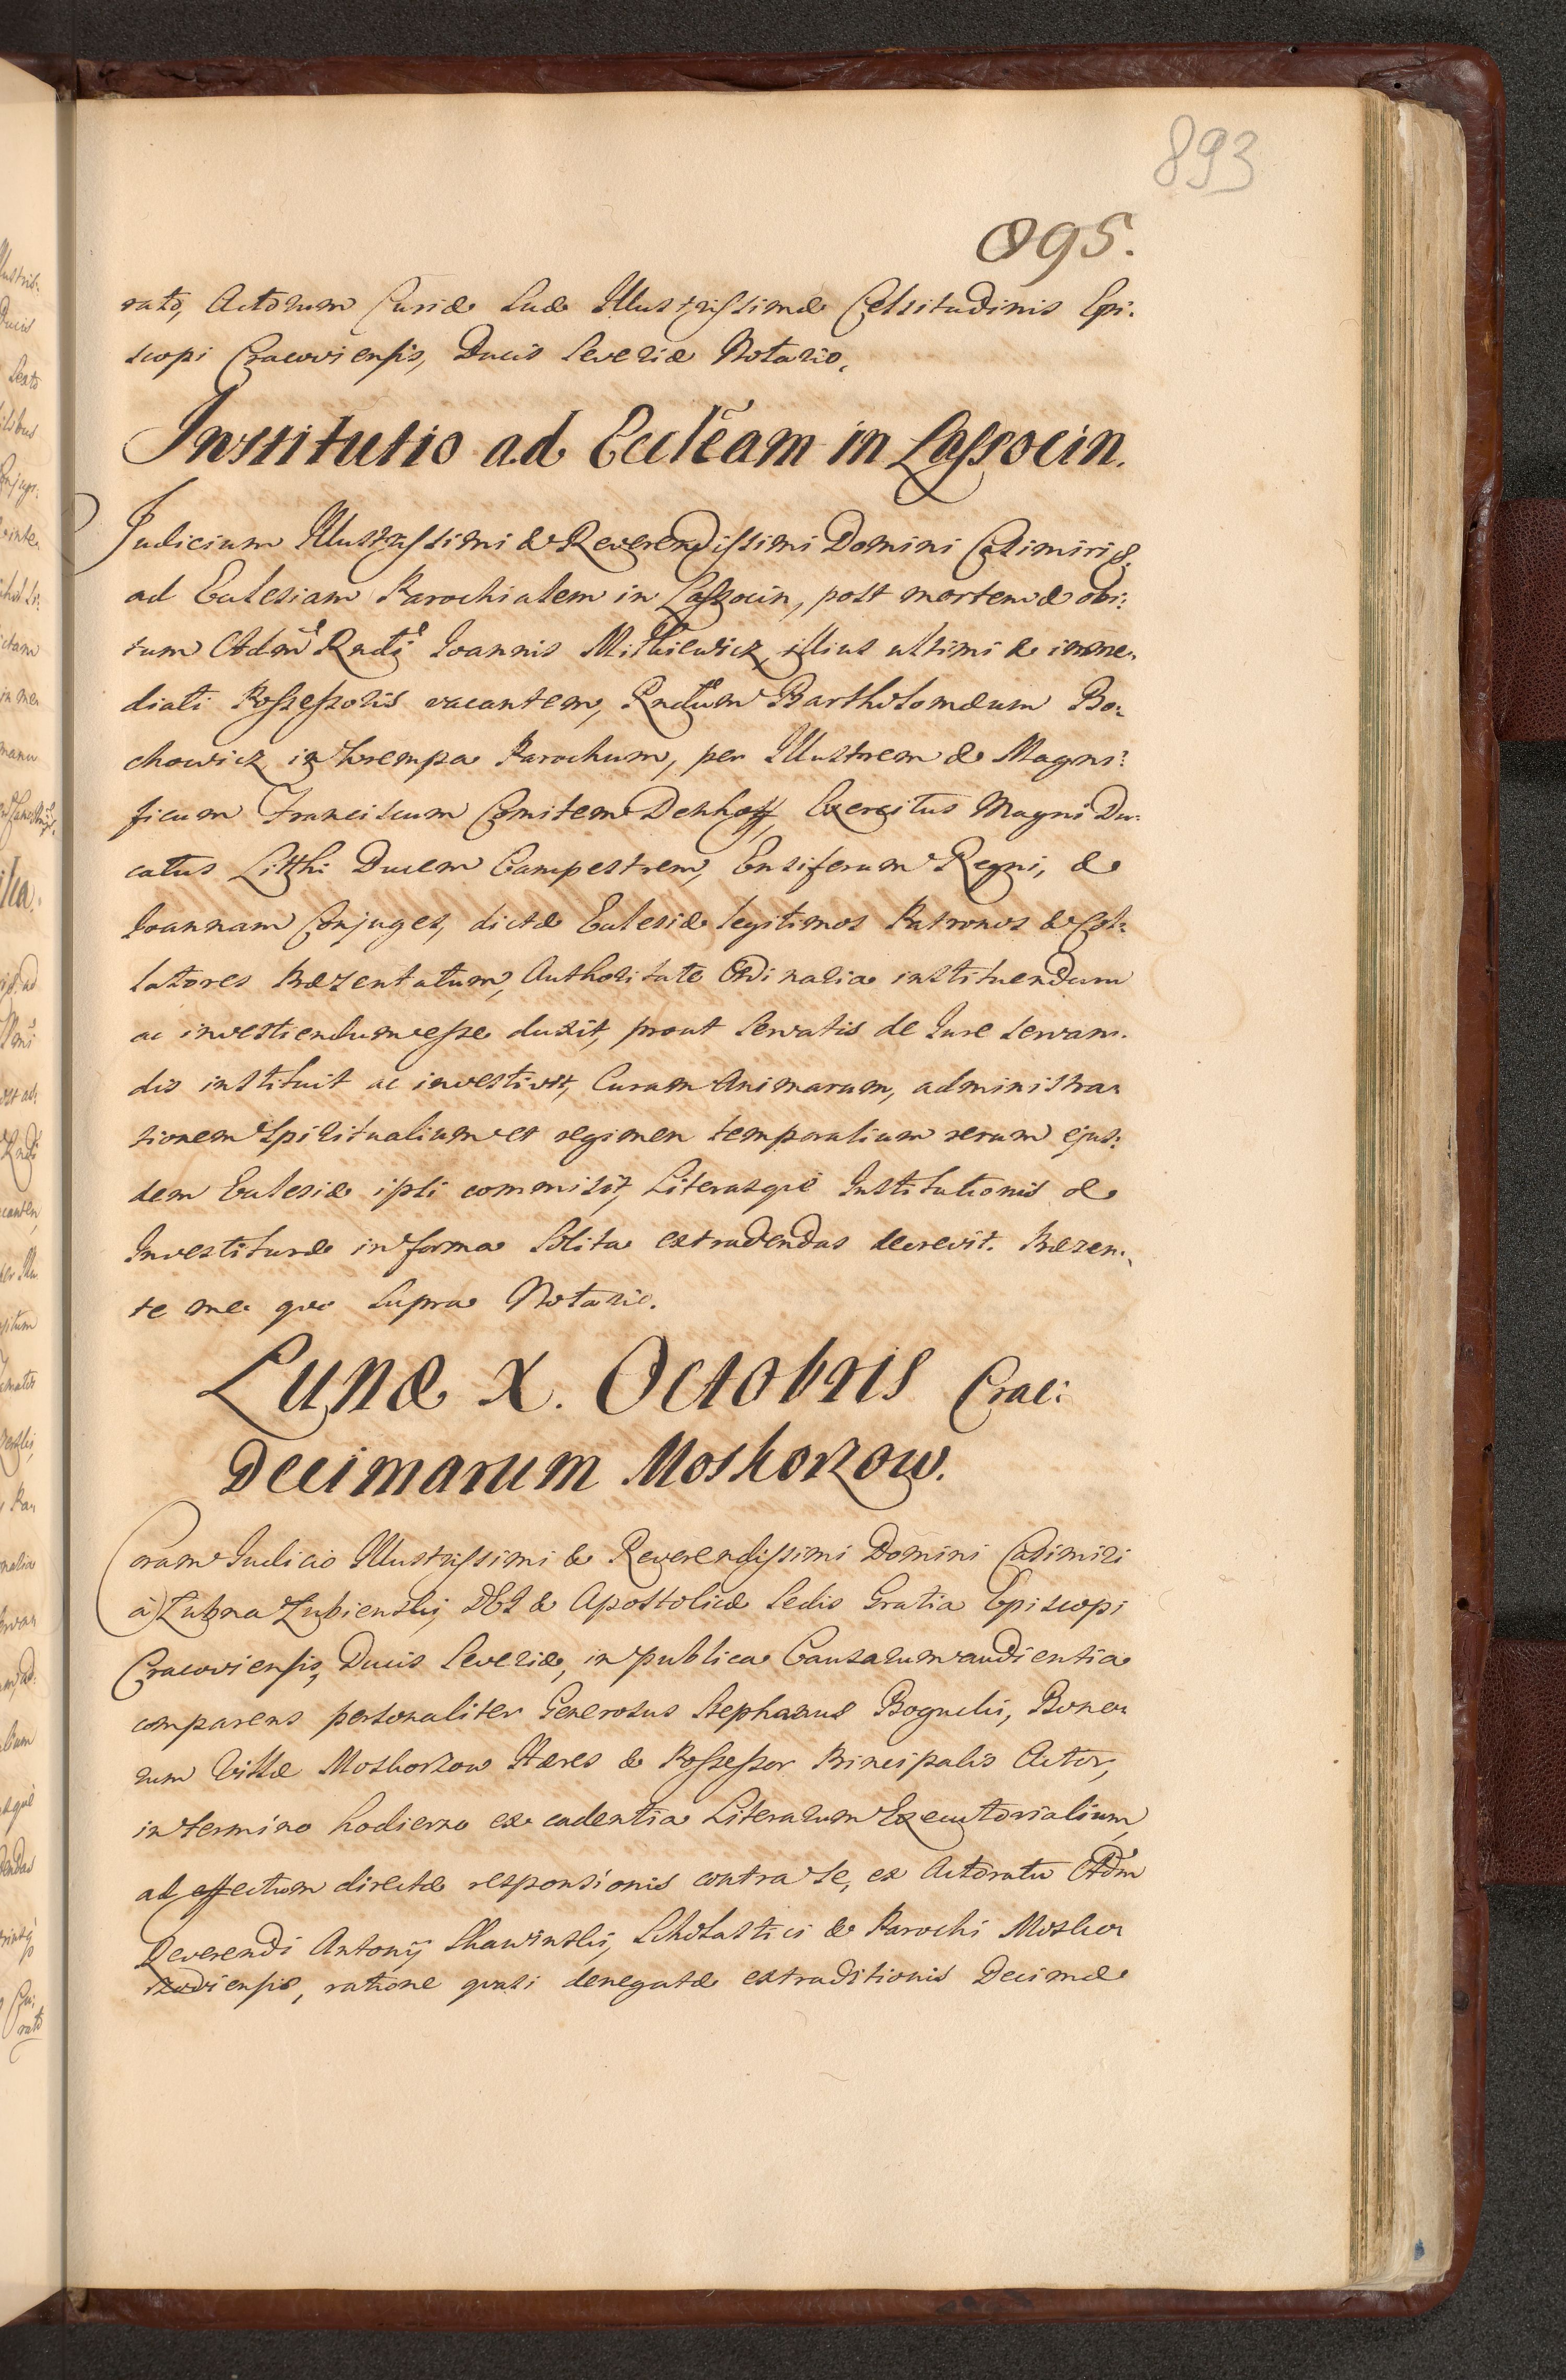 893
895.
rato, Actorum Curiæ Suæ Illustrissimæ Celsitudinis Epi:
scopi Cracoviensis, Ducis Severiæ Notario.
Institutio ad Eccleãm in Lassocin.
Judicium Illustrissimi & Reverendissimi Domini Casimiri &.
ad Ecclesiam Parochialem in Lassocin, post mortem & obi:
tum Adm Rndi Joannis Mitkiewicz, illius ultimi & imme:
diati Possessoris vacantem, Rndum Bartholomæum Bo:
chowicz in Krempa Parochum, per Illustrem & Magni:
ficum Franciscum Comitem Denhoff, Exercitus Magni Du:
catus Litthi Ducem Campestrem, Ensiferum Regni, &
Joannam Conjuges, dictæ Ecclesiæ legitimos Patronos & Col:
latores Præzentatum, Authoritate Ordinaria instituendum
ac investiendum esse duxit, prout servatis de Jure servan:
dis instituit ac investivit, Curam Animarum, administra:
tionem Spiritualium et regimen temporalium rerum ejus:
dem Ecclesiæ ipsi commisit, Literasque Institutionis &
Investituræ in forma solita extradendas decrevit. Præzen:
te me quo supra Notario.
Lunæ X. Octobris Crac:
Decimarum Moskorzow.
Coram Judicio Illustrissimi & Reverendissimi Domini Casimiri
à Łubna Łubienski, DEI & Apostolicæ Sedis Gratia Episcopi
Cracoviensis, Ducis Severiæ, in publica Causarum audientia
comparens personaliter Generosus Stephanus Bogucki, Bono:
rum Villæ Moskorzow Hæres & Possessor Principalis Actor,
in termino hodierno ex cadentia Literarum Executorialium,
ad effectum directæ responsionis contra se, ex Actoratu Adm
Reverendi Antonij Skawinski, Scholastici & Parochi Moskor
zoviensis, ratione quasi denegatæ extraditionis Decimæ